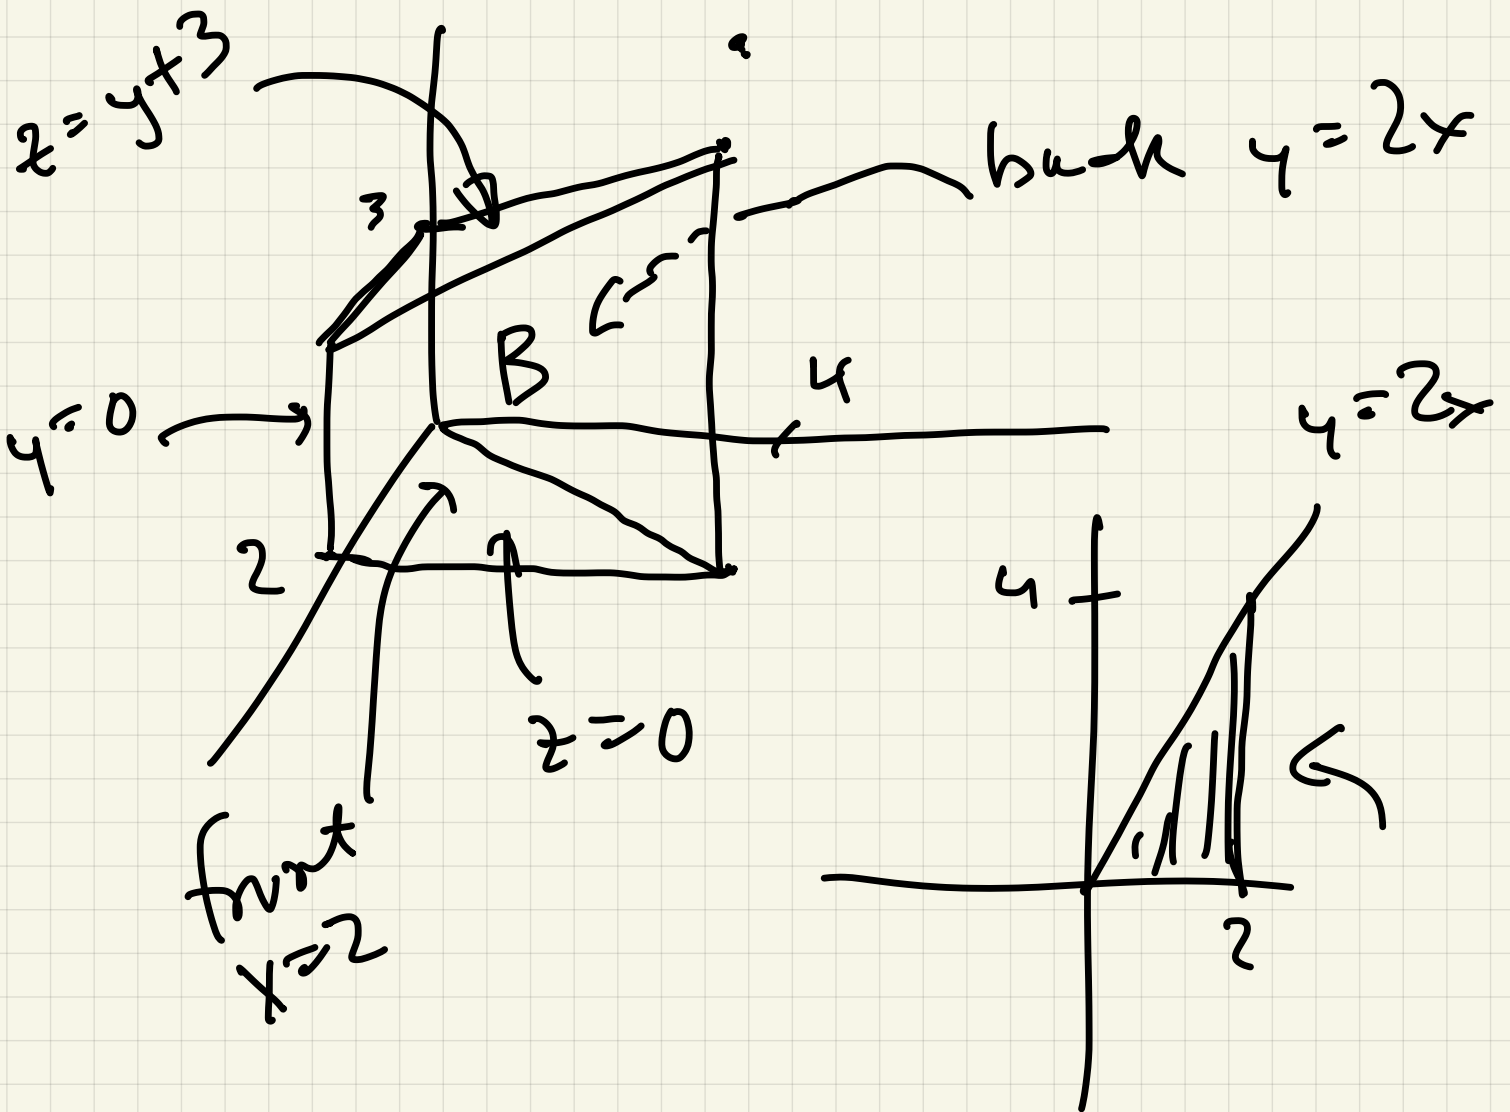 z = y+3
back y = 2x
3
B
4
y = 0
y = 2x
2
4
z = 0
front
x = 2
2